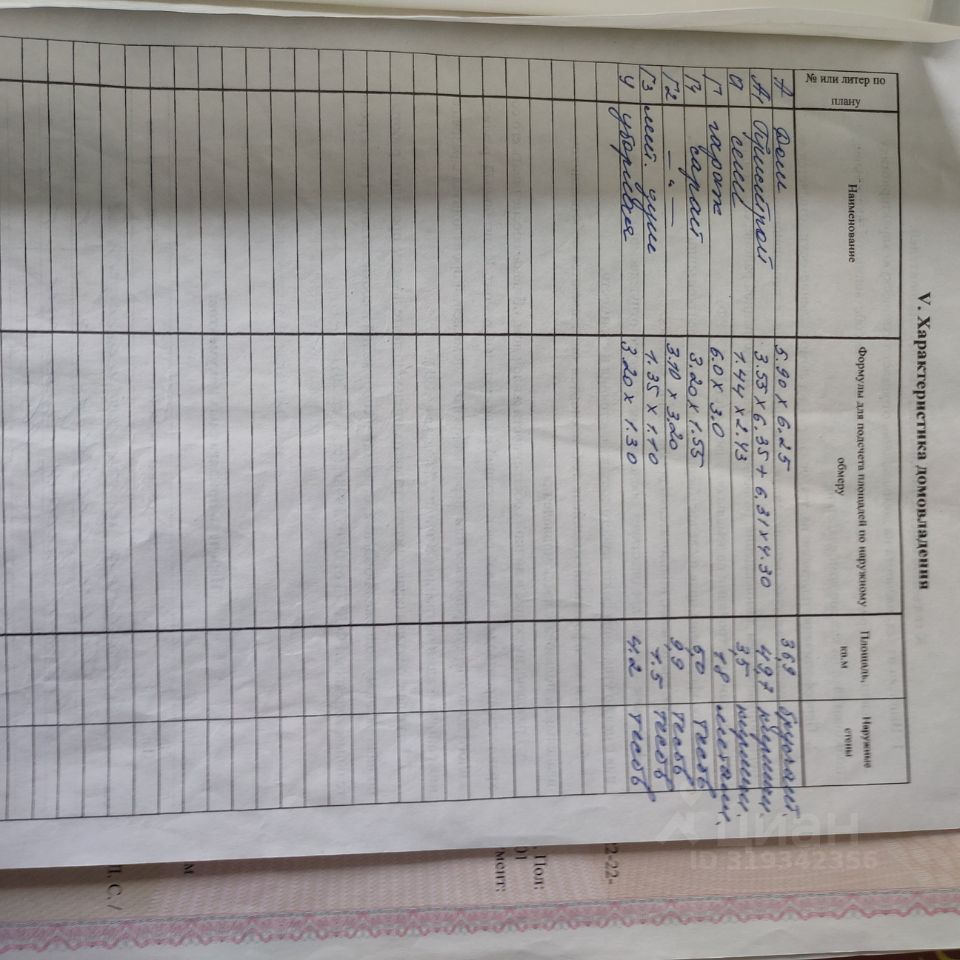 V. Характеристика домовладения
№ или литер по плану | Наименование | Формулы для подсчета площадей по наружному обмеру | Площадь, кв.м | Наружные стены
А | Дом | 5.90 x 6.25 | 36,9 | брусчат.
А1 | Пристрой | 3.55 x 6.35 + 6,31 x 4.30 | 49,7 | кирпичн.
а | сени | 1.44 x 2.43 | 3,5 | кирпичн.
Г | гараж | 6.0 x 3.0 | 18 | металл.
Г1 | сарай | 3.20 x 1.55 | 5,0 | тесов
Г2 | — „ — | 3.10 x 3,20 | 9,9 | тесов
Г3 | лет. душ | 1.35 x 1.10 | 1.5 | тесов
У | уборная | 3.20 x 1.30 | 4,2 | тесов
циан
ID 319342356
2-22-
Пол:
01
мент:
м
Л. С. /